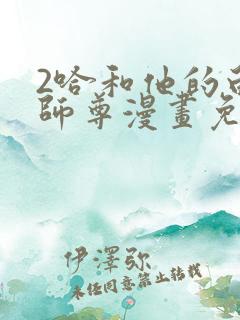 2哈和他的
師尊漫畫免
伊澤弥
未经同意禁止转载